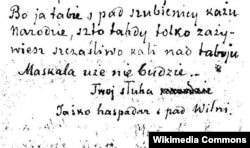 Bo ja tabie s pad szubienicy każu
Narodzie, szto tahdy tolko zaży-
wiesz szczaśliwo kali nad taboju
Maskala uże nie budzie...
Twoj słuha
Jaśko haspadar s pad Wilni.
Wikimedia Commons